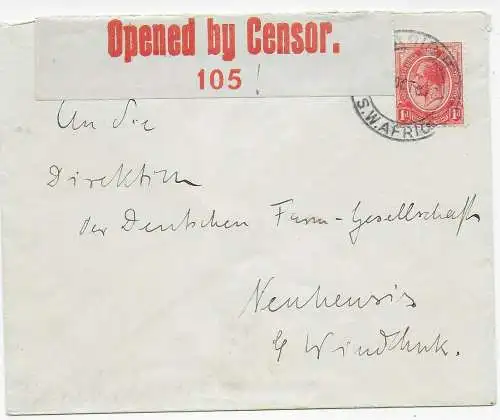 Opened by Censor.
105
S.W.AFRI
1D 1D
An die
Direktion
der Deutschen Farm-Gesellschaft
Neuheusis
b/ Windhuk.